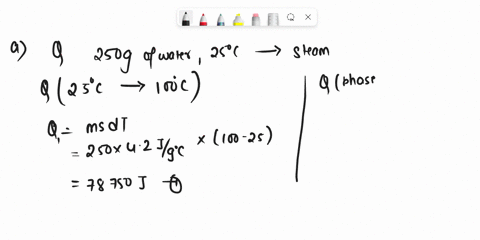 a) Q 250g of water, 25°C → steam
Q (25°C → 100°C)
Q₁ = msdT
= 250 × 4.2 J/g°C × (100-25)
= 78750 J → ①
Q (phase